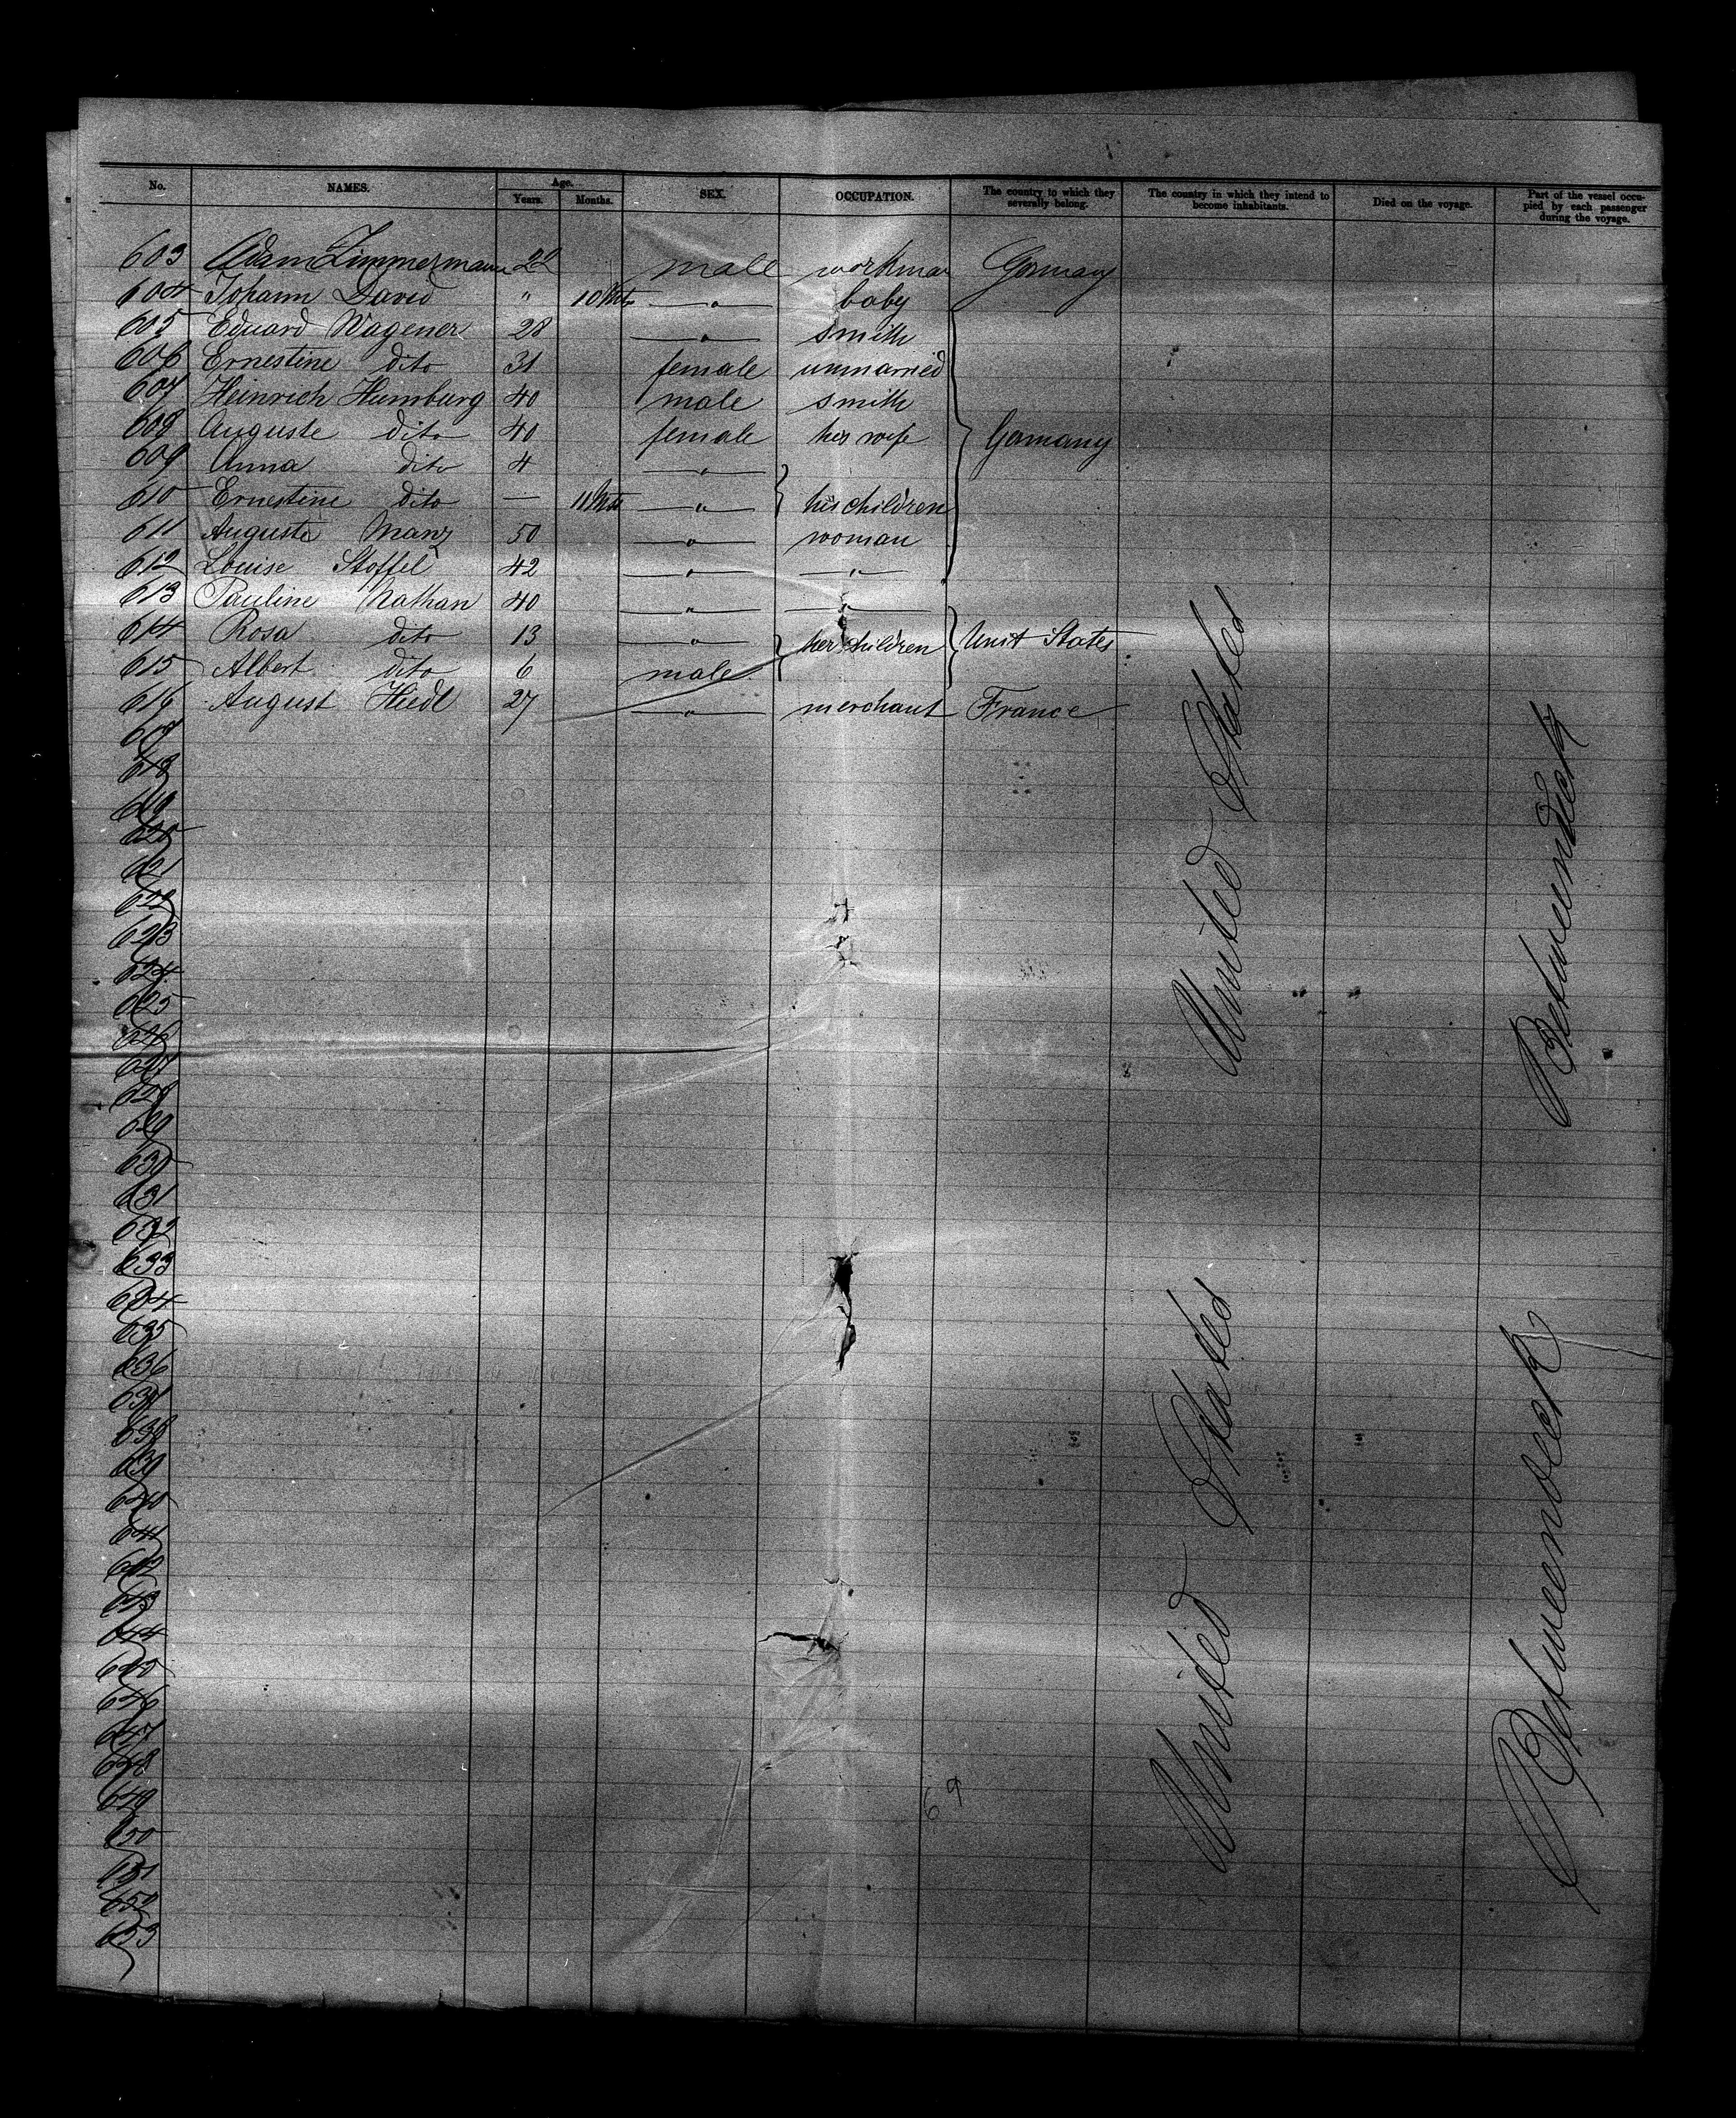 No. NAMES. Age. Years. Months. SEX. OCCUPATION. The country to which they severally belong. The country in which they intend to become inhabitants. Died on the voyage. Part of the vessel occupied by each passenger during the voyage.
603 Adam Zimmermann 22 male workman Germany
604 Johann David " 10 Mts " baby
605 Eduard Wagener 28 " smith
606 Ernestine dito 31 female unmarried
607 Heinrich Humburg 40 male smith
608 Auguste dito 40 female his wife Germany
609 Anna dito 4 "
610 Ernestine dito — 11 Mts " his children
611 Auguste Manz 50 " woman
612 Louise Stoffel 42 " "
613 Pauline Nathan 40 " "
614 Rosa dito 13 " her children Unit States
615 Albert dito 6 male
616 August Hiedl 27 " merchant France
617
618
619
620
621
622
623
624
625
626
627
628
629
630
631
632
633
634
635
636
637
638
639
640
641
642
643
644
645
646
647
648
649
650
651
652
653
United States
Betweendeck
United States
Betweendeck
69